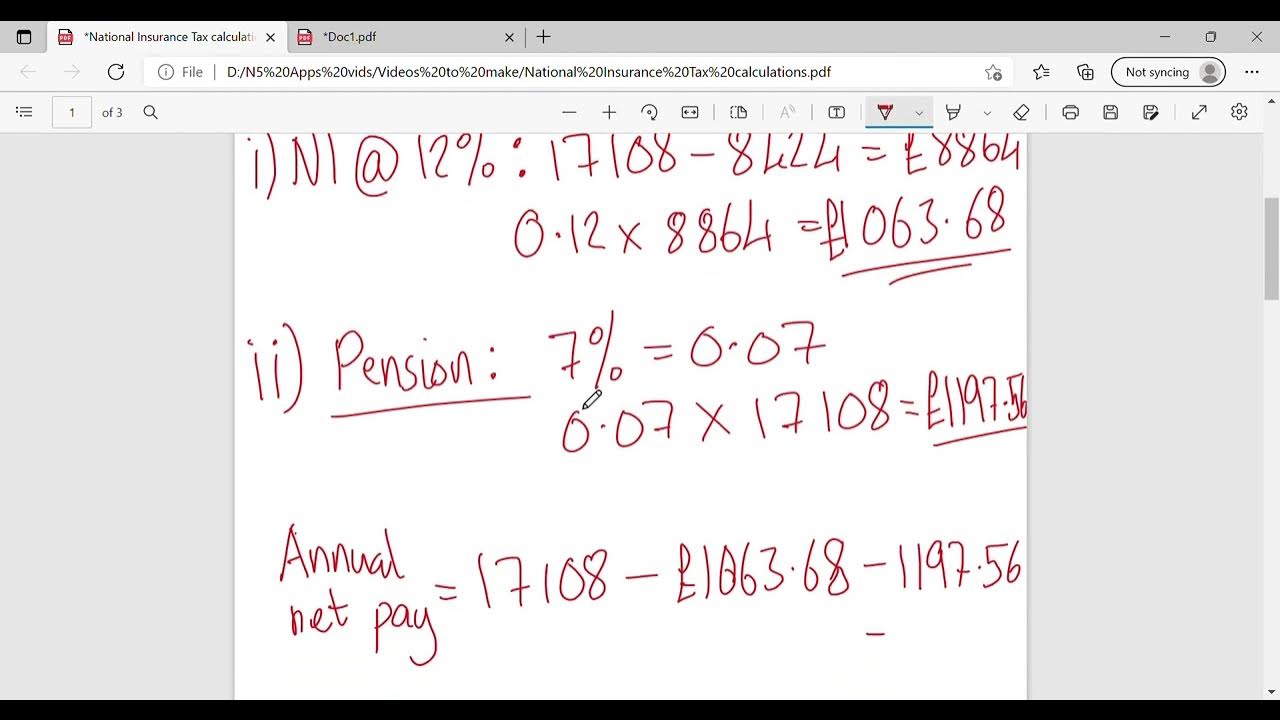 *National Insurance Tax calculati
*Doc1.pdf
File
D:/N5%20Apps%20vids/Videos%20to%20make/National%20Insurance%20Tax%20calculations.pdf
Not syncing
1 of 3
i) NI @ 12% : 17108 - 8424 = £8864
0.12 x 8864 = £1063.68
ii) Pension: 7% = 0.07
0.07 x 17108 = £1197.56
Annual
net pay = 17108 - £1063.68 - 1197.56
-